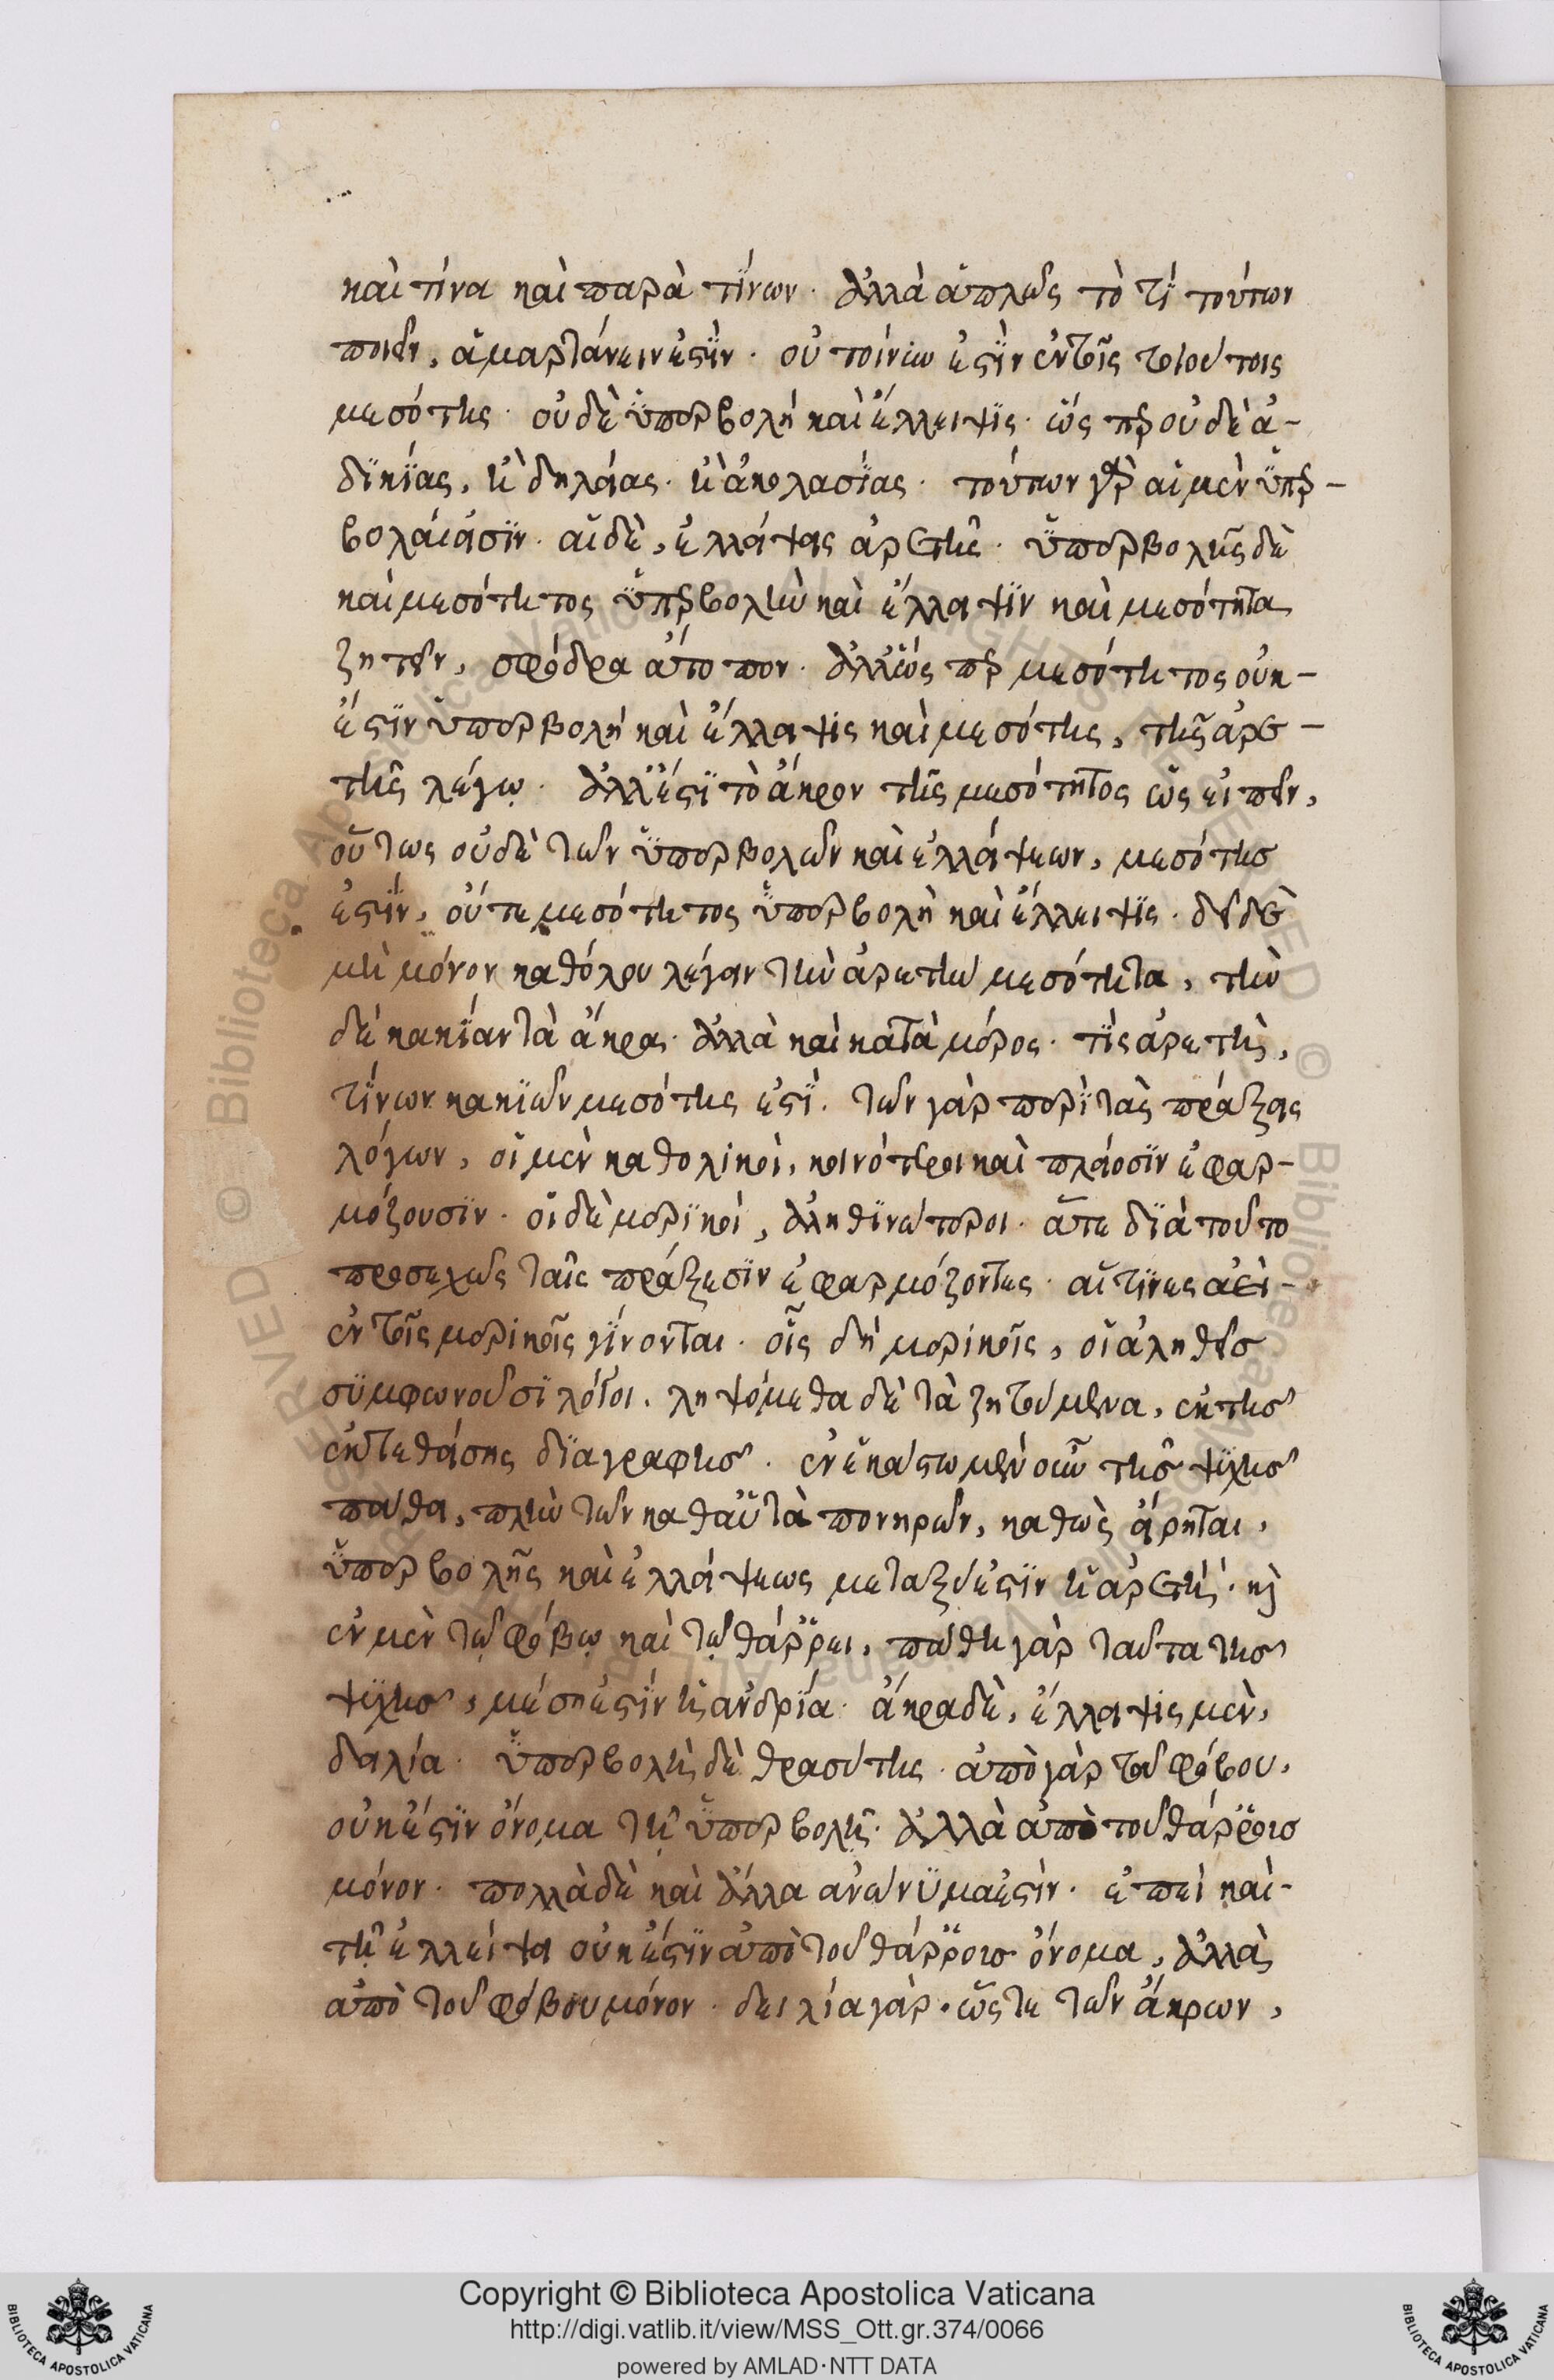 καὶ τίνα καὶ παρὰ τίνων· ἀλλὰ ἁπλῶς τὸ τὶ τούτων
ποιεῖν, ἁμαρτάνειν ἐστὶν· οὐ τοίνυν ἐστὶν ἐν τοῖς τοιούτοις
μεσότης· οὐδὲ ὑπερβολὴ καὶ ἔλλειψις· ὥς περ οὐδὲ ἀ-
δικίας, ἢ δειλείας· ἢ ἀκολασίας· τούτων γὰρ αἱ μὲν ὑπερ-
βολαί εἰσιν· αἱ δὲ, ἐλλείψεις ἀρετῆς· ὑπερβολῆς δὲ
καὶ μεσότητος ὑπερβολὴν καὶ ἔλλειψιν καὶ μεσότητα
ζητεῖν, σφόδρα ἄτοπον· ἀλλ' ὥς περ μεσότητος οὐκ-
ἔστιν ὑπερβολὴ καὶ ἔλλειψις καὶ μεσότης, τῆς ἀρε-
τῆς λέγω· ἀλλ' ἔστι τὸ ἄκρον τῆς μεσότητος ὡς εἰπεῖν,
οὕτως οὐδὲ τῶν ὑπερβολῶν καὶ ἐλλείψεων, μεσότης
ἐστὶν, οὔτε μεσότητος ὑπερβολὴ καὶ ἔλλειψις· δεῖ δὲ
μὴ μόνον καθόλου λέγειν τὴν ἀρετὴν μεσότητα, τὴν
δὲ κακίαν τὰ ἄκρα· ἀλλὰ καὶ κατὰ μέρος· τίς ἀρετὴ,
τίνων κακιῶν μεσότης ἐστί· τῶν γὰρ περὶ τὰς πράξεις
λόγων, οἱ μὲν καθολικοὶ, κοινότεροι καὶ πλείοσιν ἐφαρ-
μόζουσιν· οἱ δὲ μερικοὶ, ἀληθινώτεροι· ἅτε διὰ τοῦτο
προσεχῶς ταῖς πράξεσιν ἐφαρμόζοντες· αἵτινες ἀεὶ-
ἐν τοῖς μερικοῖς γίνονται· οἷς δὴ μερικοῖς, οἱ ἀληθεῖς
συμφωνοῦσι λόγοι· ληψόμεθα δὲ τὰ ζητούμενα, ἐκ τῆς
ἐκτεθείσης διαγραφῆς· ἐν ἑκάστω μὲν οὖν τῆς ψυχῆς
πάθει, πλὴν τῶν καθ' αὑτὰ πονηρῶν, καθὼς εἴρηται,
ὑπερβολῆς καὶ ἐλλείψεως μεταξύ ἐστιν ἡ ἀρετή· καὶ
ἐν μὲν τῷ φόβῳ καὶ τῷ θάρρει, πάθη γὰρ ταῦτα τῆς
ψυχῆς, μέση ἐστὶν ἡ ἀνδρία· ἄκρα δὲ, ἔλλειψις μὲν,
δειλία· ὑπερβολὴ δὲ θρασύτης· ἀπὸ γὰρ τοῦ φόβου,
οὐκ ἔστιν ὄνομα τῇ ὑπερβολῇ· ἀλλὰ ἀπὸ τοῦ θάρρους
μόνον· πολλὰ δὲ καὶ ἄλλα ἀνώνυμα ἐστὶν· ἐπεὶ καὶ-
τῇ ἐλλείψει οὐκ ἔστιν ἀπὸ τοῦ θάρρους ὄνομα, ἀλλὰ
ἀπὸ τοῦ φόβου μόνον· δειλία γὰρ· ὥστε τῶν ἄκρων,
Copyright © Biblioteca Apostolica Vaticana
http://digi.vatlib.it/view/MSS_Ott.gr.374/0066
powered by AMLAD·NTT DATA